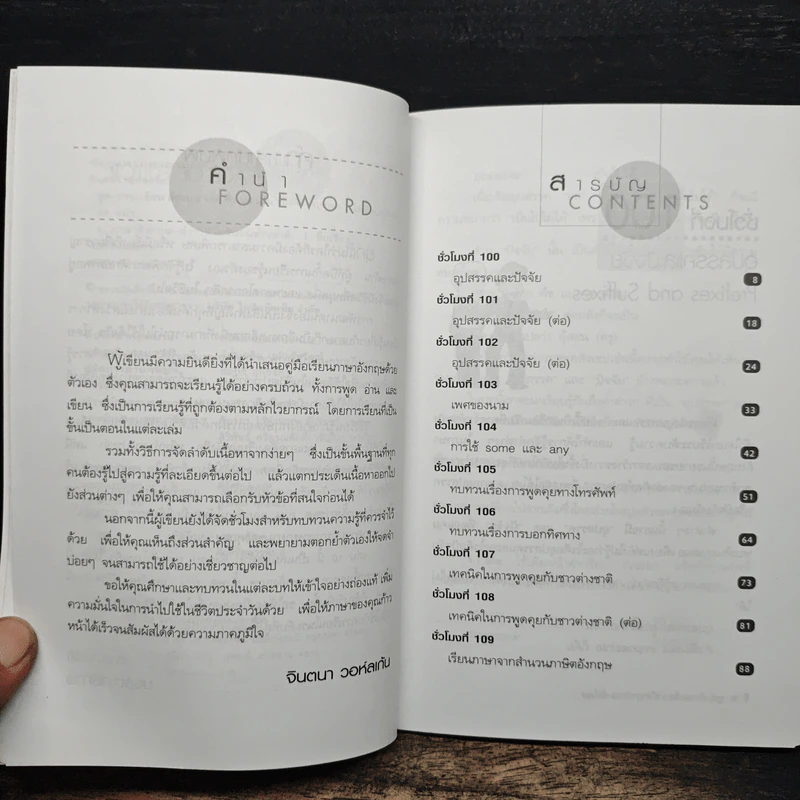 คำนำ
FOREWORD
ผู้เขียนมีความยินดียิ่งที่ได้นำเสนอคู่มือเรียนภาษาอังกฤษด้วย
ตัวเอง ซึ่งคุณสามารถจะเรียนรู้ได้อย่างครบถ้วน ทั้งการพูด อ่าน และ
เขียน ซึ่งเป็นการเรียนรู้ที่ถูกต้องตามหลักไวยากรณ์ โดยการเรียนที่เป็น
ขั้นเป็นตอนในแต่ละเล่ม
รวมทั้งวิธีการจัดลำดับเนื้อหาจากง่ายๆ ซึ่งเป็นขั้นพื้นฐานที่ทุก
คนต้องรู้ไปสู่ความรู้ที่ละเอียดขึ้นต่อไป แล้วแตกประเด็นเนื้อหาออกไป
ยังส่วนต่างๆ เพื่อให้คุณสามารถเลือกรับหัวข้อที่สนใจก่อนได้
นอกจากนี้ผู้เขียนยังได้จัดชั่วโมงสำหรับทบทวนความรู้ที่ควรจำไว้
ด้วย เพื่อให้คุณเห็นถึงส่วนสำคัญ และพยายามตอกย้ำตัวเองให้จดจำ
บ่อยๆ จนสามารถใช้ได้อย่างเชี่ยวชาญต่อไป
ขอให้คุณศึกษาและทบทวนในแต่ละบทให้เข้าใจอย่างถ่องแท้ เพิ่ม
ความมั่นใจในการนำไปใช้ในชีวิตประจำวันด้วย เพื่อให้ภาษาของคุณก้าว
หน้าได้เร็วจนสัมผัสได้ด้วยความภาคภูมิใจ
จินตนา วอห์ลแก้น
สารบัญ
CONTENTS
ชั่วโมงที่ 100
อุปสรรคและปัจจัย 8
ชั่วโมงที่ 101
อุปสรรคและปัจจัย (ต่อ) 18
ชั่วโมงที่ 102
อุปสรรคและปัจจัย (ต่อ) 24
ชั่วโมงที่ 103
เพศของนาม 33
ชั่วโมงที่ 104
การใช้ some และ any 42
ชั่วโมงที่ 105
ทบทวนเรื่องการพูดคุยทางโทรศัพท์ 51
ชั่วโมงที่ 106
ทบทวนเรื่องการบอกทิศทาง 64
ชั่วโมงที่ 107
เทคนิคในการพูดคุยกับชาวต่างชาติ 73
ชั่วโมงที่ 108
เทคนิคในการพูดคุยกับชาวต่างชาติ (ต่อ) 81
ชั่วโมงที่ 109
เรียนภาษาจากสำนวนภาษิตอังกฤษ 88